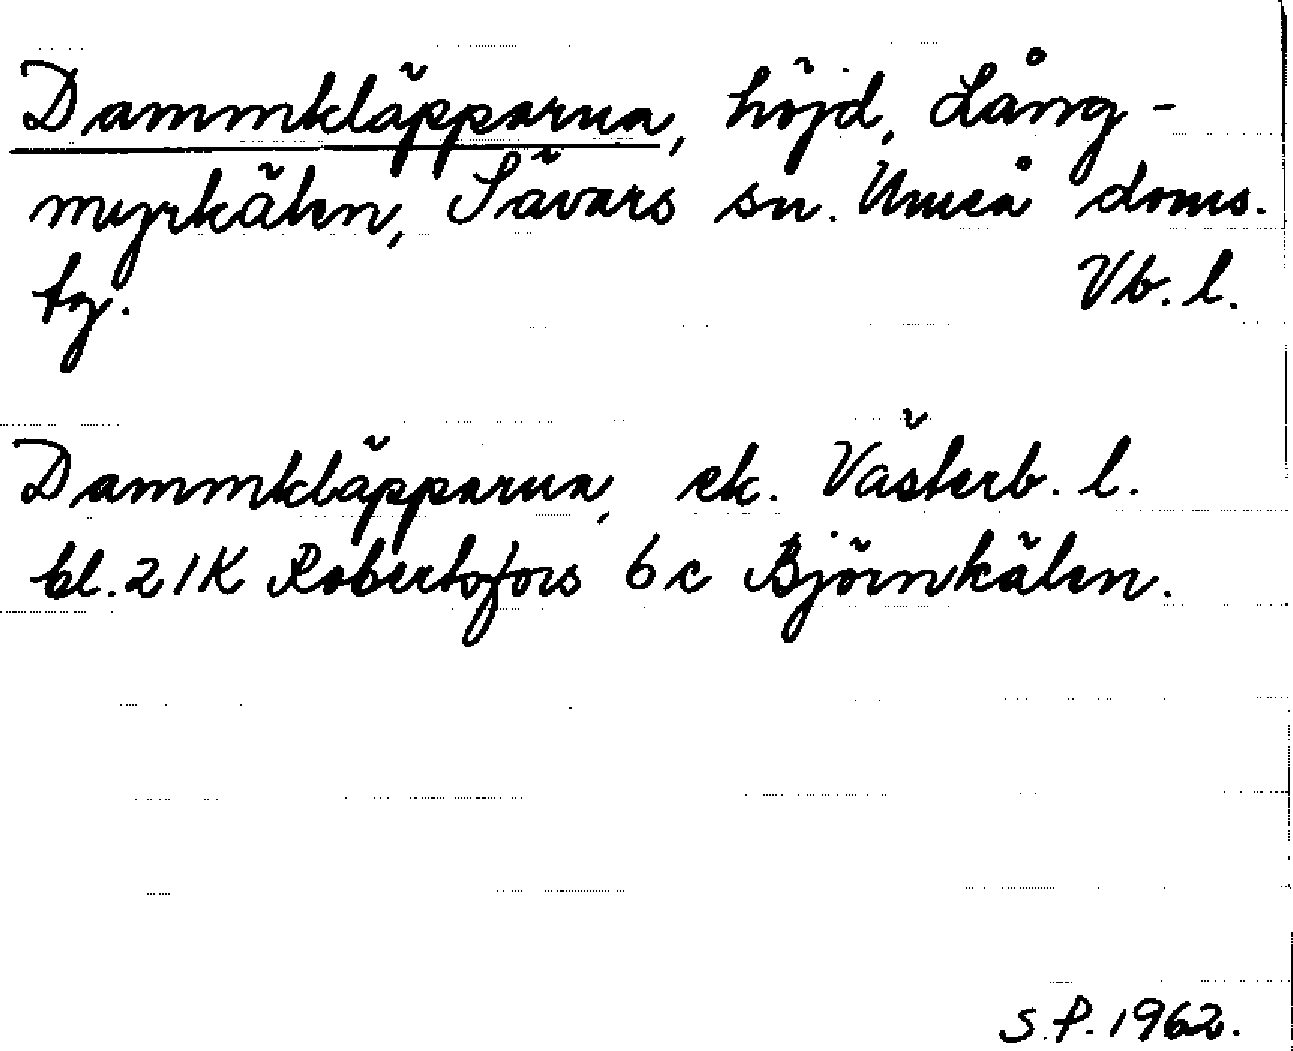 Dammkläpparna, höjd, Lång-
myrkälen, Sävars sn. Umeå doms.
tg. Vb. l.
Dammkläpparna, ek. Västerb. l.
bl. 21K Robertsfors 6c Björnkälen.
S.P. 1962.